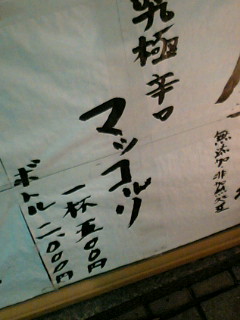 無添加
究極辛口
マッコルリ
一杯五〇〇円
ボトル二、〇〇〇円